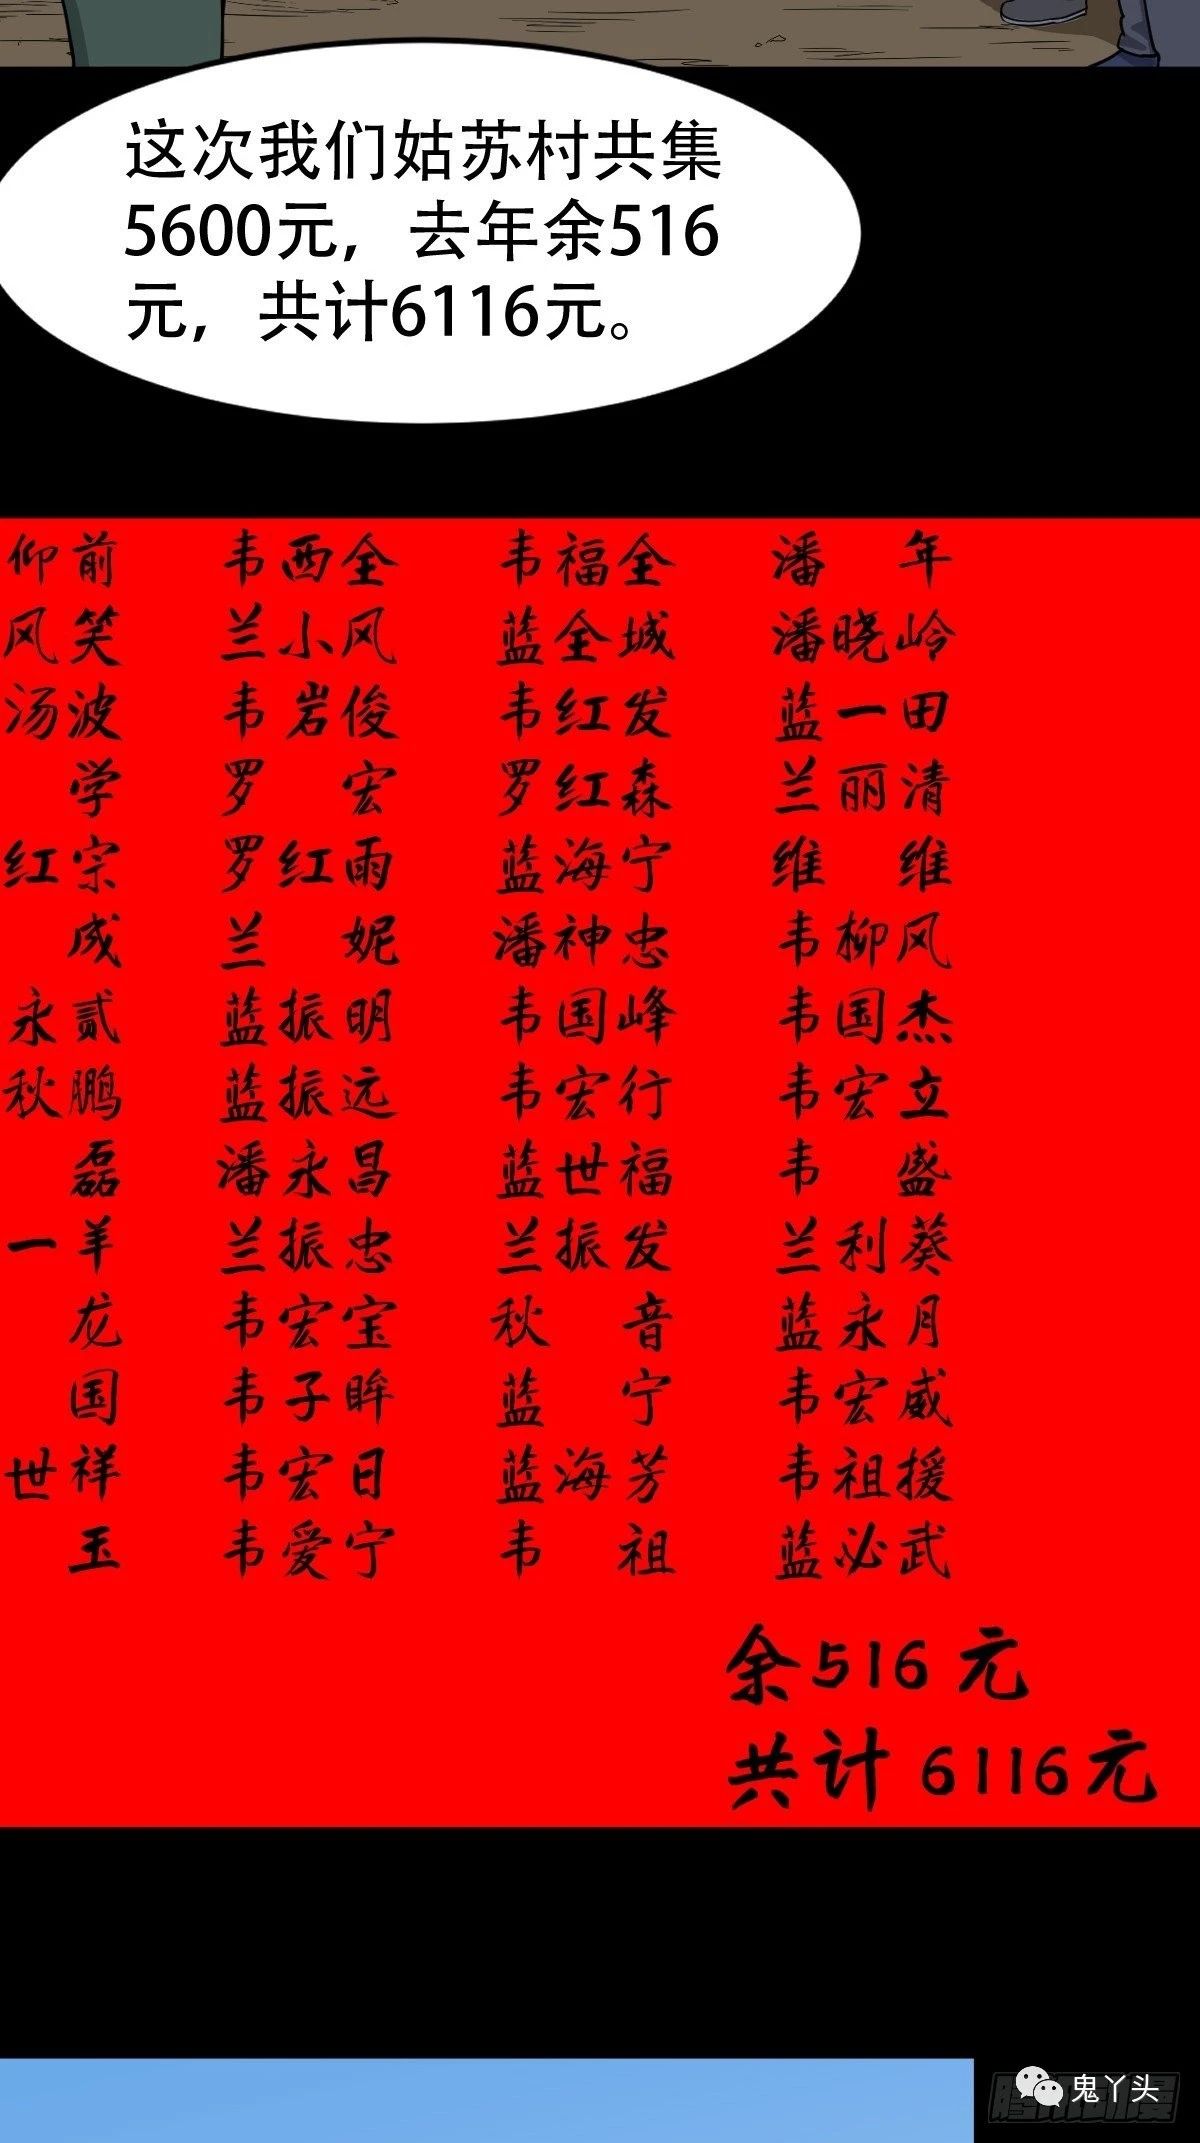 这次我们姑苏村共集
5600元，去年余516
元，共计6116元。
仰前 韦西全 韦福全 潘 年
风笑 兰小风 蓝全城 潘晓岭
汤波 韦岩俊 韦红发 蓝一田
学 罗 宏 罗红森 兰丽清
红宗 罗红雨 蓝海宁 维 维
成 兰 妮 潘神忠 韦柳风
永贰 蓝振明 韦国峰 韦国杰
秋鹏 蓝振远 韦宏行 韦宏立
磊 潘永昌 蓝世福 韦 盛
一羊 兰振忠 兰振发 兰利葵
龙 韦宏宝 秋 音 蓝永月
国 韦子眸 蓝 宁 韦宏威
世祥 韦宏日 蓝海芳 韦祖援
玉 韦爱宁 韦 祖 蓝必武
余516元
共计6116元
鬼丫头
腾讯动漫